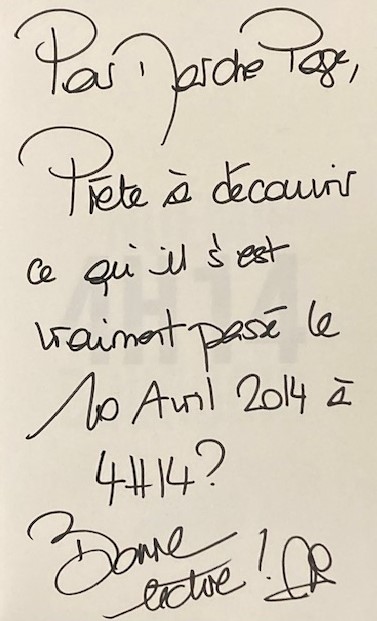 Pour Marche Page,
Prête à découvrir
ce qui il s'est
vraiment passé le
10 Avril 2014 à
4H14?
Bonne
lecture!